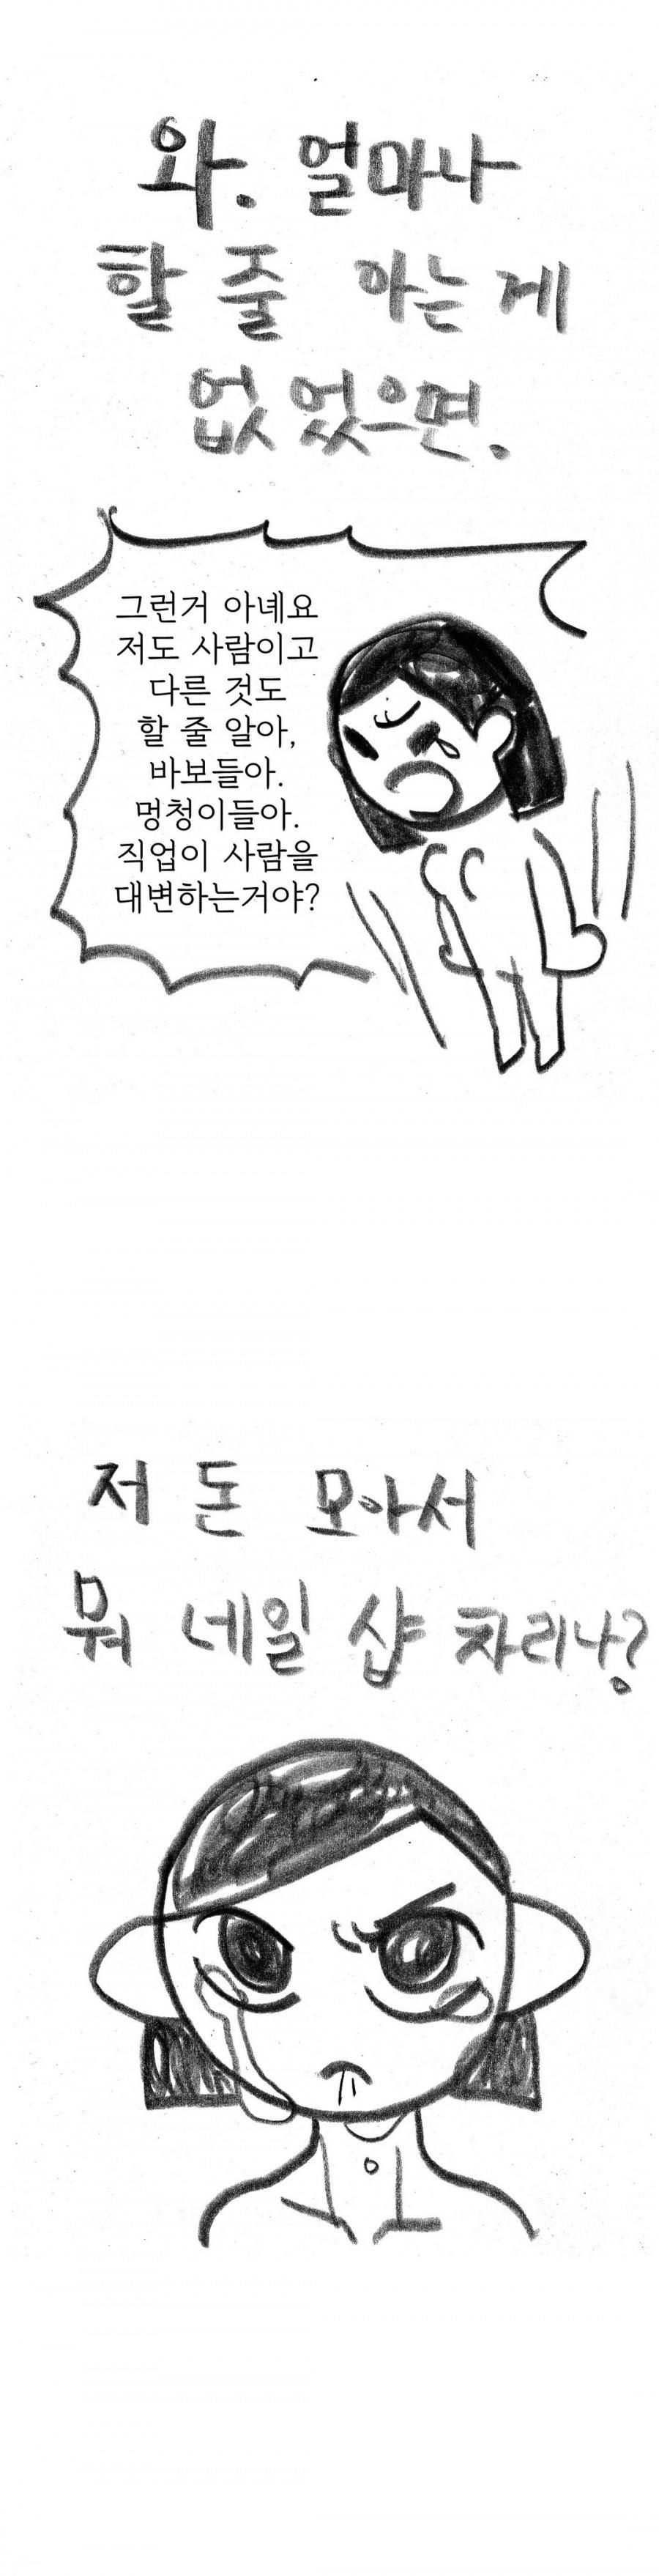 와. 얼마나
할 줄 아는게
없었으면.
그런거 아녜요
저도 사람이고
다른 것도
할 줄 알아,
바보들아.
멍청이들아.
직업이 사람을
대변하는거야?
저 돈 모아서
뭐 네일 샵 차리나?